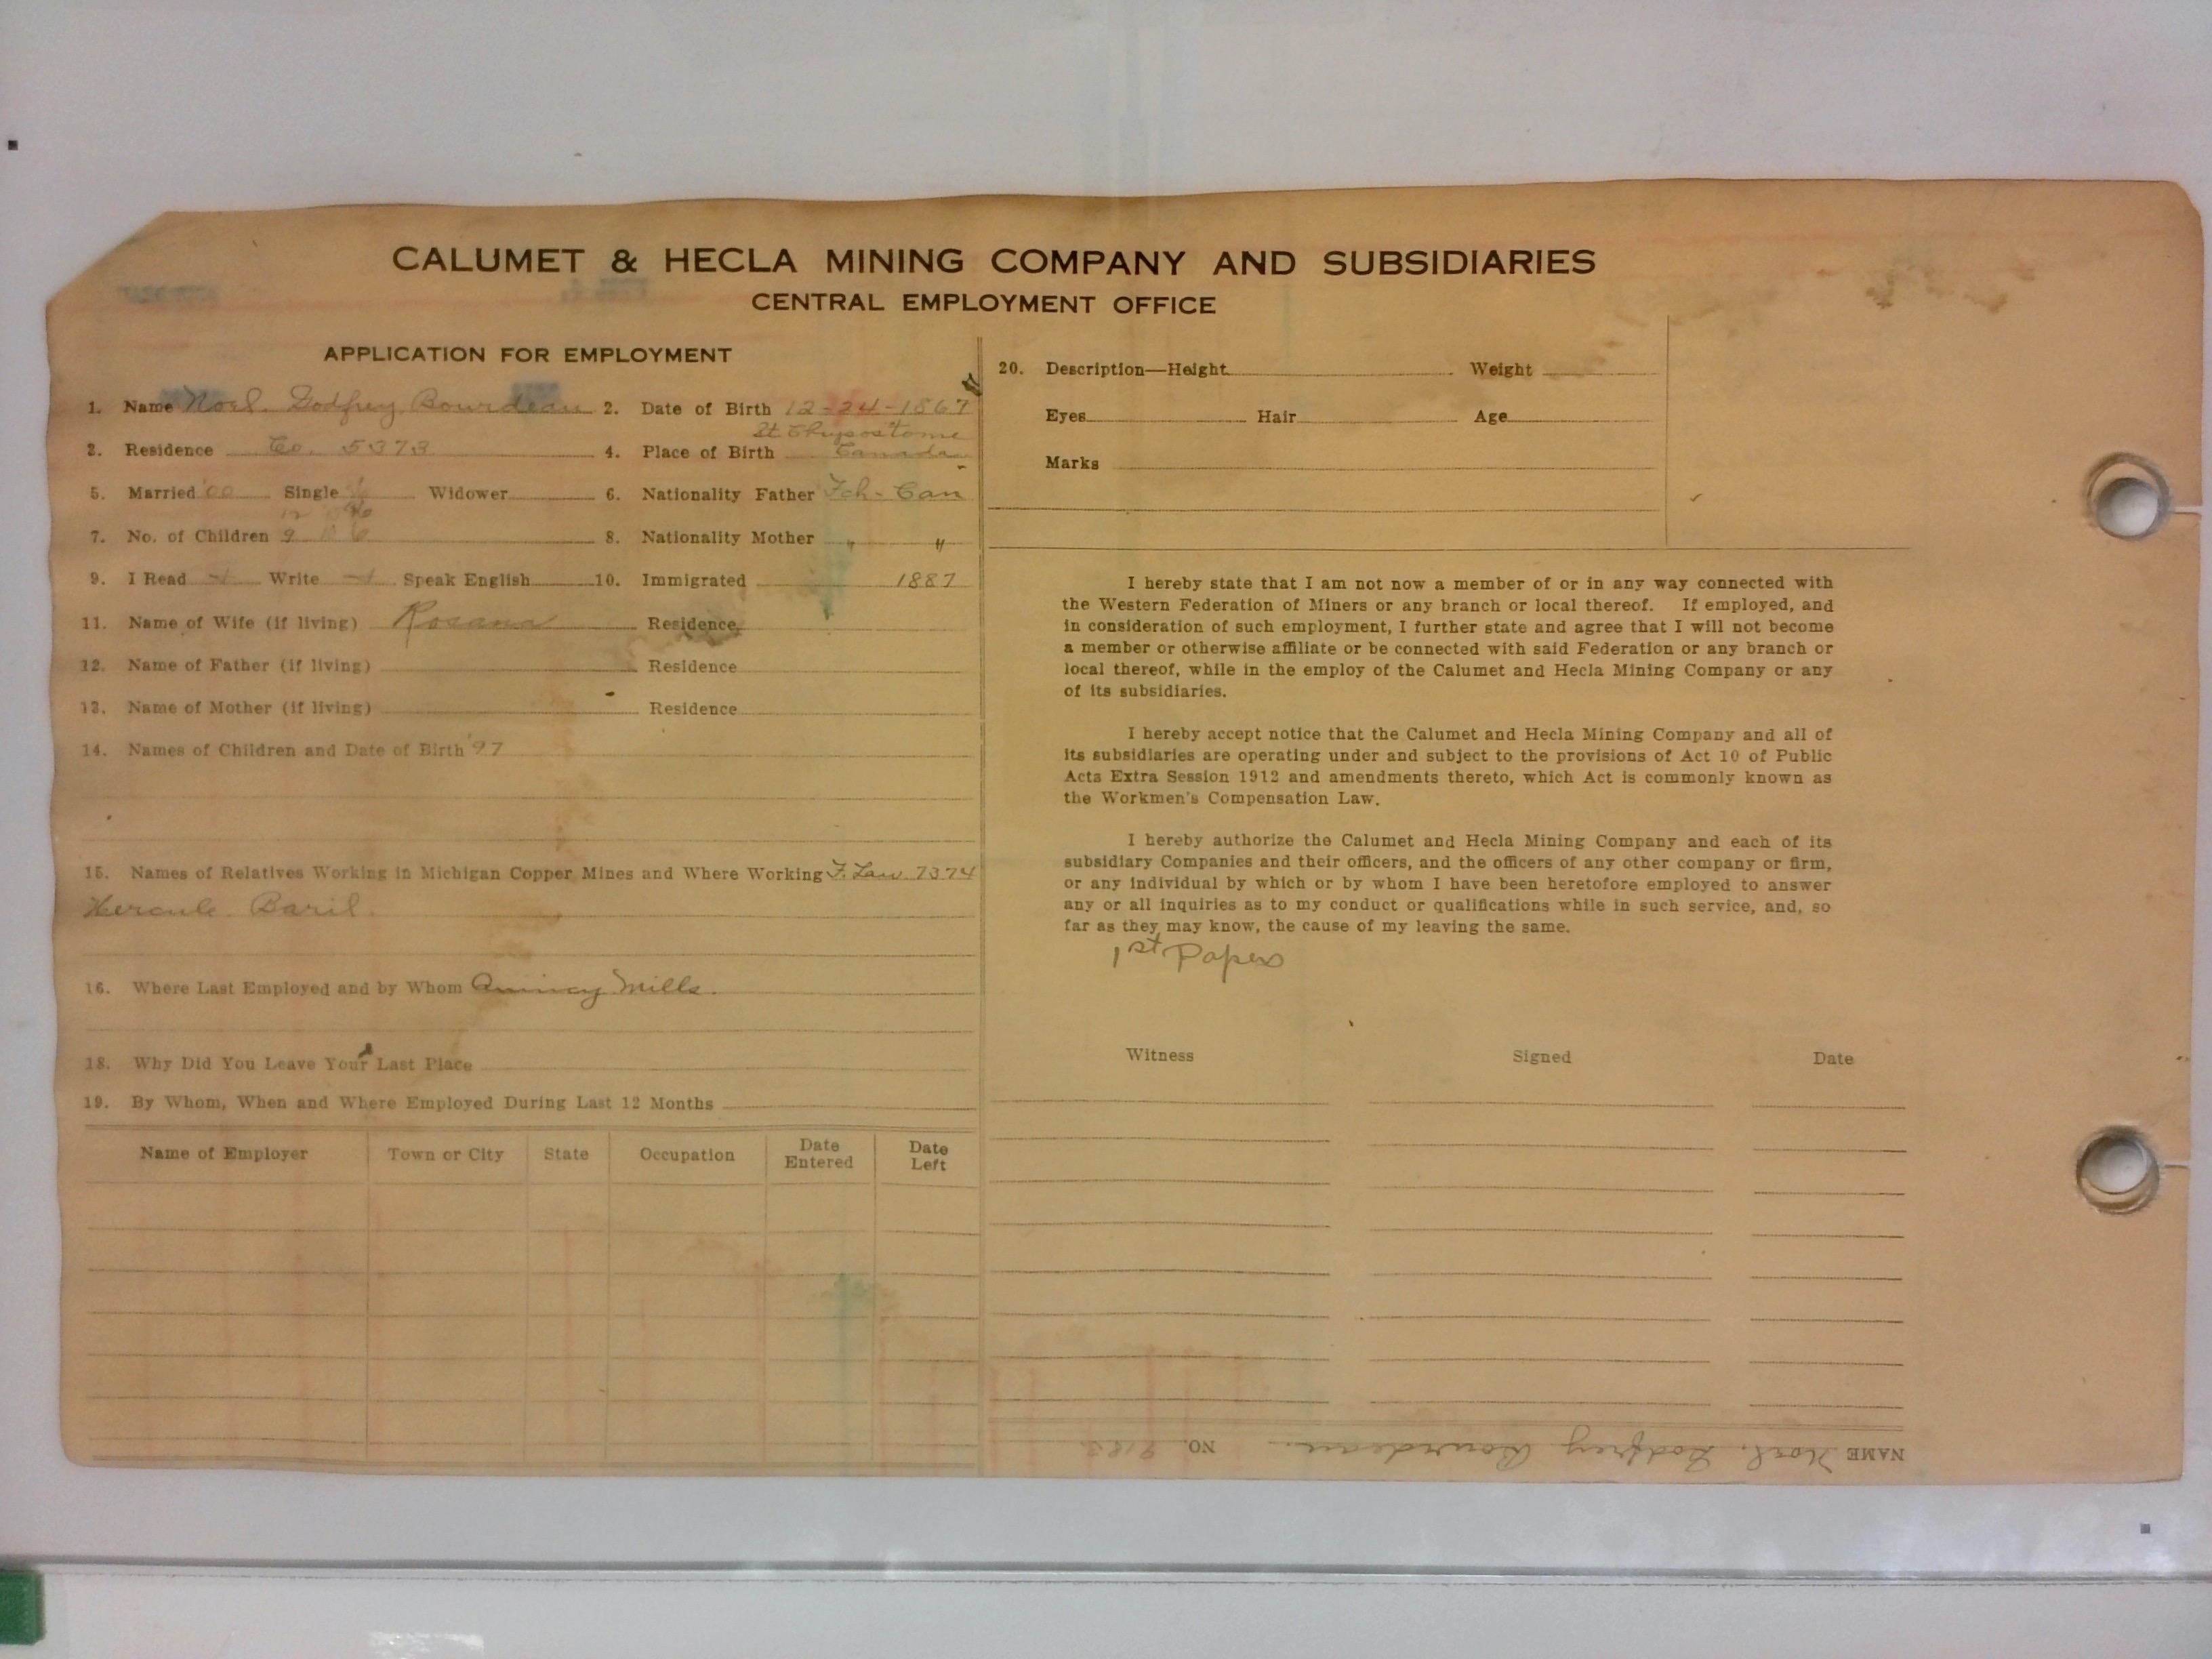 CALUMET & HECLA MINING COMPANY AND SUBSIDIARIES
CENTRAL EMPLOYMENT OFFICE
APPLICATION FOR EMPLOYMENT
1. Name Noel. Godfrey Bourdeau 2. Date of Birth 12-24-1867
St Chrysostome
3. Residence Co. 5373 4. Place of Birth Canada
5. Married '00 Single Widower 6. Nationality Father Fch-Can
7. No. of Children 9 8. Nationality Mother " "
9. I Read Write Speak English 10. Immigrated 1887
11. Name of Wife (if living) Rosanna Residence
12. Name of Father (if living) Residence
13. Name of Mother (if living) Residence
14. Names of Children and Date of Birth '97
15. Names of Relatives Working in Michigan Copper Mines and Where Working F. Law 7374
Hercule Baril
16. Where Last Employed and by Whom Quincy Mills.
18. Why Did You Leave Your Last Place
19. By Whom, When and Where Employed During Last 12 Months
Name of Employer Town or City State Occupation Date Entered Date Left
20. Description—Height Weight
Eyes Hair Age
Marks
I hereby state that I am not now a member of or in any way connected with
the Western Federation of Miners or any branch or local thereof. If employed, and
in consideration of such employment, I further state and agree that I will not become
a member or otherwise affiliate or be connected with said Federation or any branch or
local thereof, while in the employ of the Calumet and Hecla Mining Company or any
of its subsidiaries.
I hereby accept notice that the Calumet and Hecla Mining Company and all of
its subsidiaries are operating under and subject to the provisions of Act 10 of Public
Acts Extra Session 1912 and amendments thereto, which Act is commonly known as
the Workmen's Compensation Law.
I hereby authorize the Calumet and Hecla Mining Company and each of its
subsidiary Companies and their officers, and the officers of any other company or firm,
or any individual by which or by whom I have been heretofore employed to answer
any or all inquiries as to my conduct or qualifications while in such service, and, so
far as they may know, the cause of my leaving the same.
1st Papers
Witness Signed Date
NAME Noel. Godfrey Bourdeau. NO.